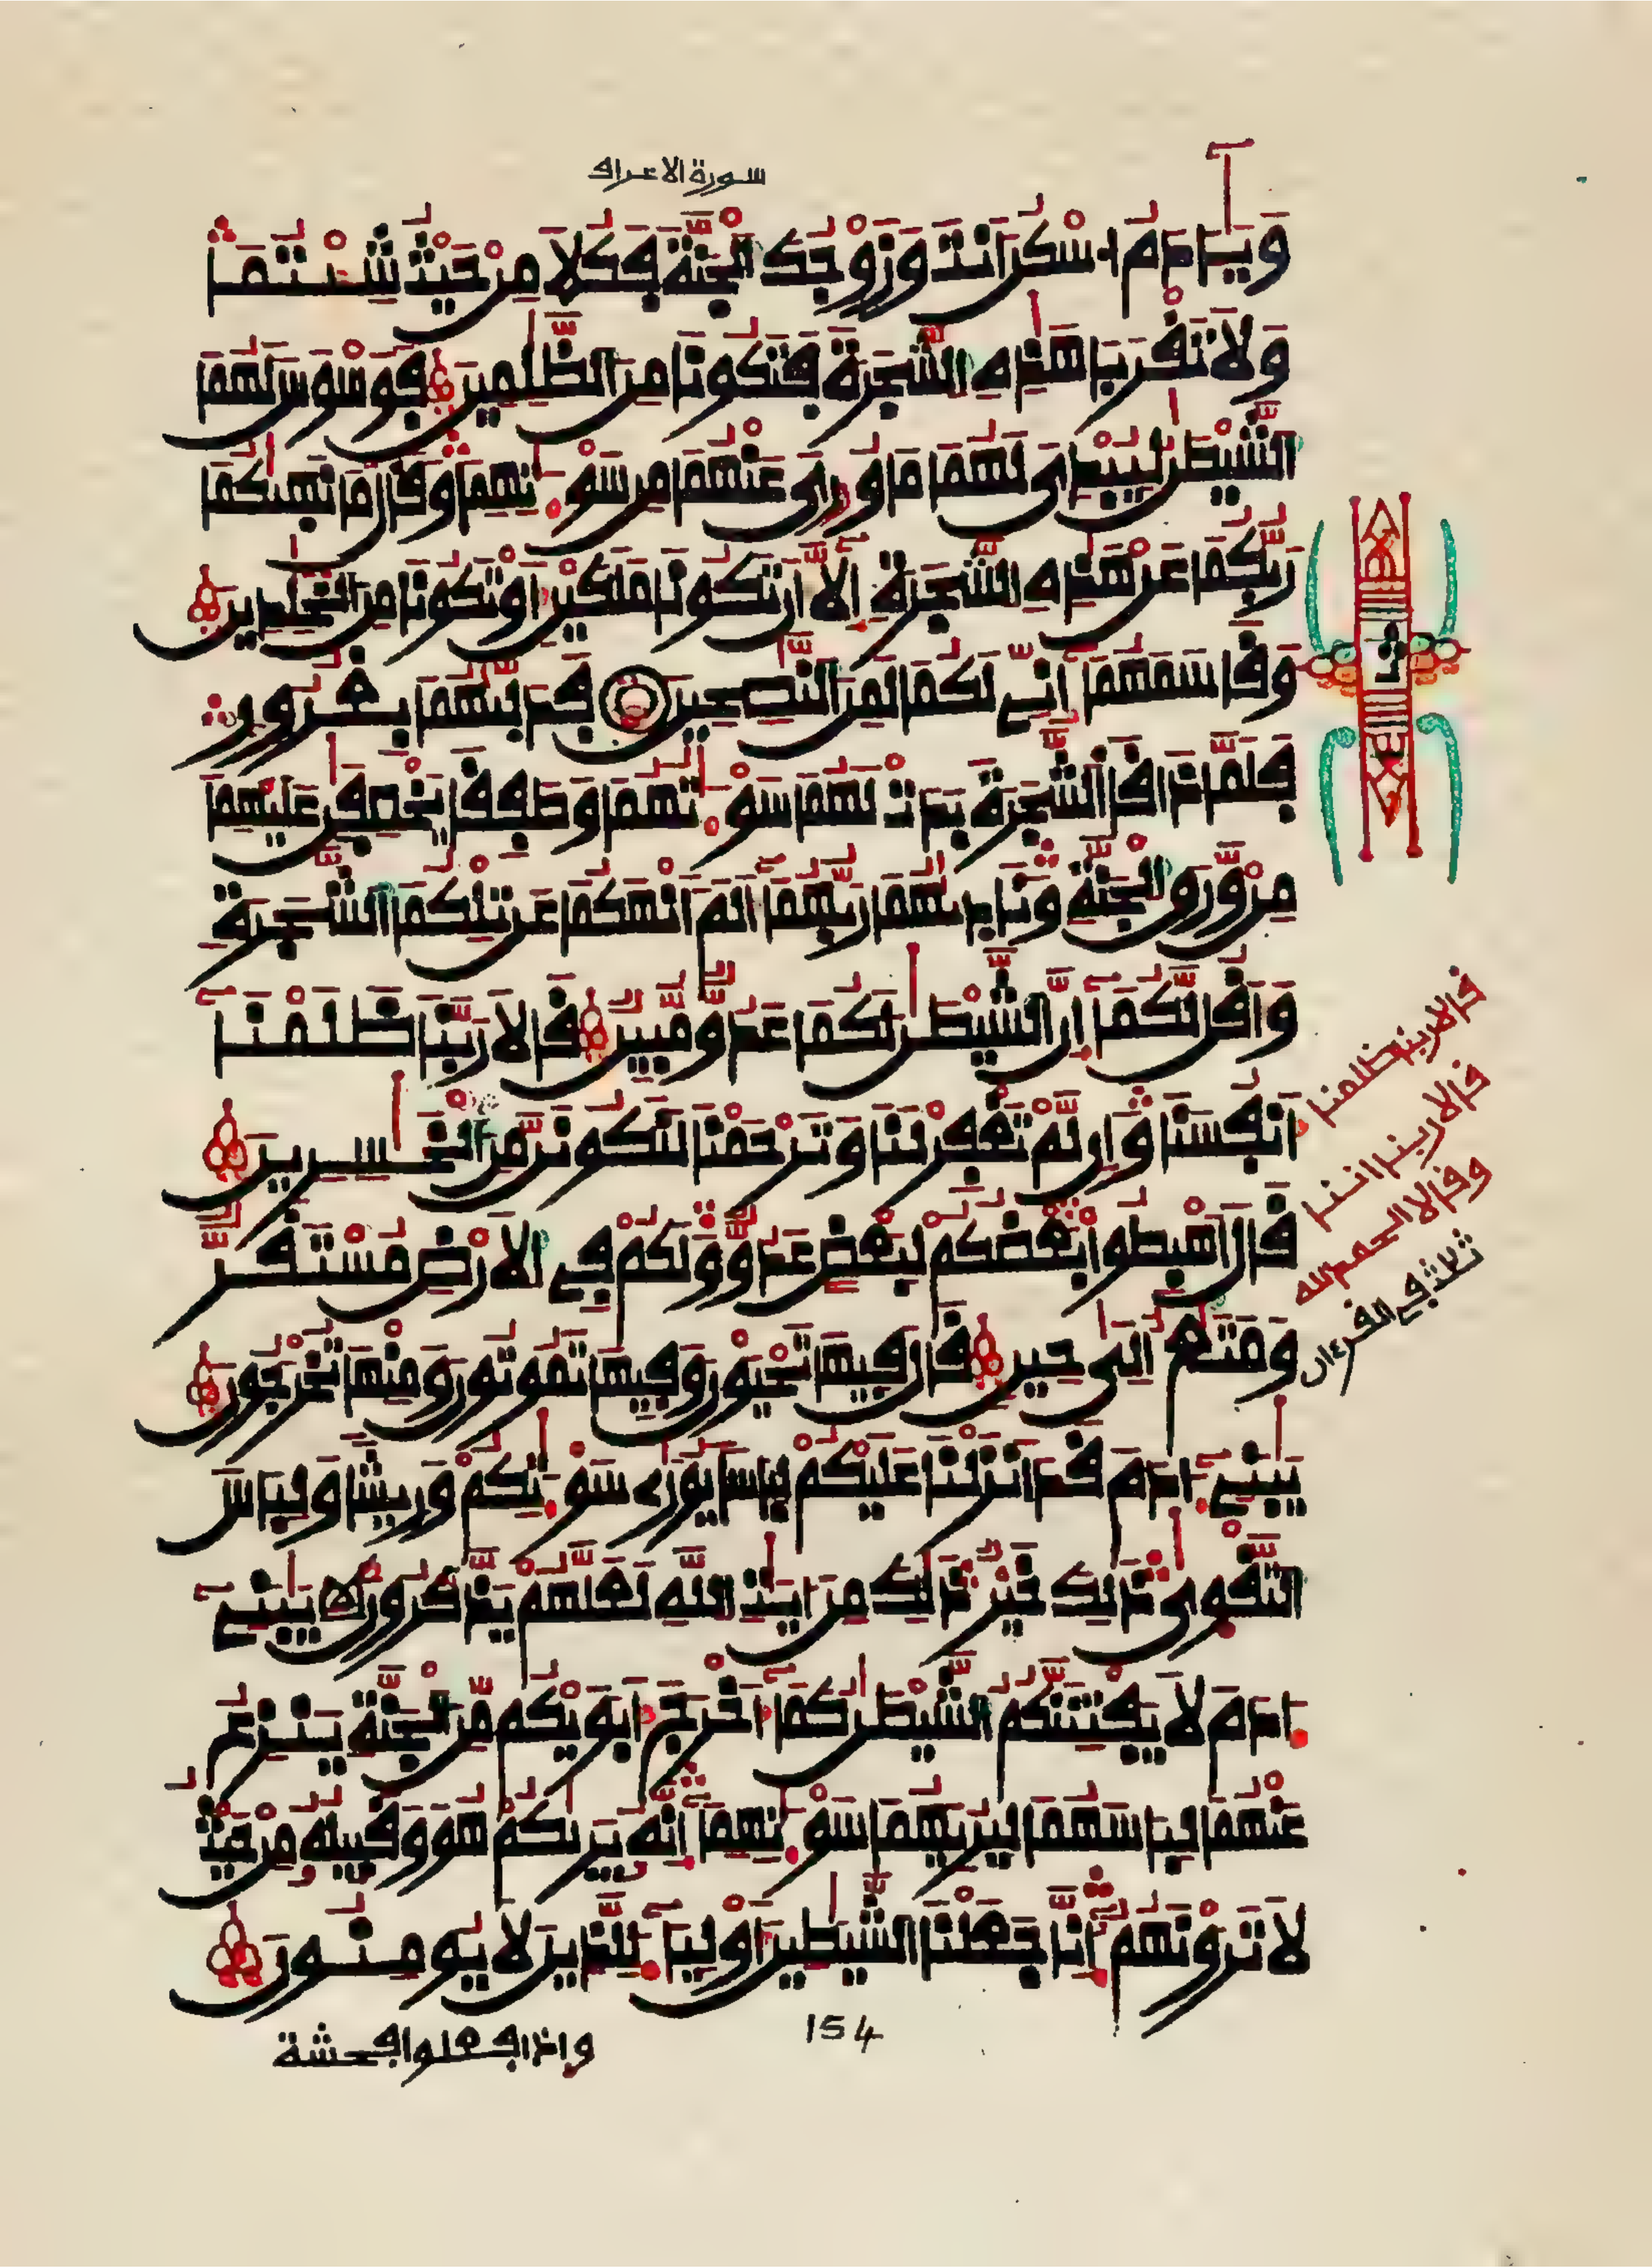 سورة الاعراف
وَيَـٰٓـَٔادَمُ ا۟سْكُنَ اَنتَ وَزَوْجُكَ اَ۬لْجَنَّةَ فَكُلَا مِنْ حَيْثُ شِئْتُمَا
وَلَا تَقْرَبَا هَـٰذِهِ اِ۬لشَّجَرَةَ فَتَكُونَا مِنَ اَ۬لظَّـٰلِمِينَ فَوَسْوَسَ لَهُمَا
اَ۬لشَّيْطَـٰنُ لِيُبْدِيَ لَهُمَا مَا وُۥرِيَ عَنْهُمَا مِن سَوْءَٰتِهِمَا وَقَالَ مَا نَهَىٰكُمَا
رَبُّكُمَا عَنْ هَـٰذِهِ اِ۬لشَّجَرَةِ إِلَّآ أَن تَكُونَا مَلَكَيْنِ أَوْ تَكُونَا مِنَ اَ۬لْخَـٰلِدِينَ
وَقَاسَمَهُمَآ إِنِّے لَكُمَا لَمِنَ اَ۬لنَّـٰصِحِينَ فَدَلَّىٰهُمَا بِغُرُورٍ
فَلَمَّا ذَاقَا اَ۬لشَّجَرَةَ بَدَتْ لَهُمَا سَوْءَٰتُهُمَا وَطَفِقَا يَخْصِفَـٰنِ عَلَيْهِمَا
مِنْ وَّرَقِ اِ۬لْجَنَّةِ وَنَادَىٰهُمَا رَبُّهُمَآ أَلَمَ اَنْهَكُمَا عَن تِلْكُمَا اَ۬لشَّجَرَةِ
وَأَقُل لَّكُمَآ إِنَّ اَ۬لشَّيْطَـٰنَ لَكُمَا عَدُوٌّ مُّبِينٌ قَالَا رَبَّنَا ظَلَمْنَآ
أَنفُسَنَا وَإِن لَّمْ تَغْفِرْ لَنَا وَتَرْحَمْنَا لَنَكُونَنَّ مِنَ اَ۬لْخَـٰسِرِينَ
قَالَ اَ۪هْبِطُوا بَعْضُكُمْ لِبَعْضٍ عَدُوٌّ وَلَكُمْ فِے اِ۬لَارْضِ مُسْتَقَرٌّ
وَمَتَـٰعٌ اِلَىٰ حِينٍ قَالَ فِيهَا تَحْيَوْنَ وَفِيهَا تَمُوتُونَ وَمِنْهَا تُخْرَجُونَ
يَـٰبَنِےٓ ءَادَمَ قَدَ اَنزَلْنَا عَلَيْكُمْ لِبَاسًا يُوَٰرِے سَوْءَٰتِكُمْ وَرِيشًا وَلِبَاسَ
اَ۬لتَّقْوَىٰ ذَٰلِكَ خَيْرٌ ذَٰلِكَ مِنَ اٰيَـٰتِ اِ۬للَّهِ لَعَلَّهُمْ يَذَّكَّرُونَ يَـٰبَنِےٓ
ءَادَمَ لَا يَفْتِنَنَّكُمُ اُ۬لشَّيْطَـٰنُ كَمَآ أَخْرَجَ أَبَوَيْكُم مِّنَ اَ۬لْجَنَّةِ يَنزِعُ
عَنْهُمَا لِبَاسَهُمَا لِيُرِيَهُمَا سَوْءَٰتِهِمَآ إِنَّهُۥ يَرَىٰكُمْ هُوَ وَقَبِيلُهُۥ مِنْ حَيْثُ
لَا تَرَوْنَهُمُۥٓ إِنَّا جَعَلْنَا اَ۬لشَّيَـٰطِينَ أَوْلِيَآءَ لِلَّذِينَ لَا يُومِنُونَ
قالا ربنا ظلمنا
قالا ربنا اننا
وقالا الحمد لله
ثلث في القرءان
154
واذا فعلوا فحشة